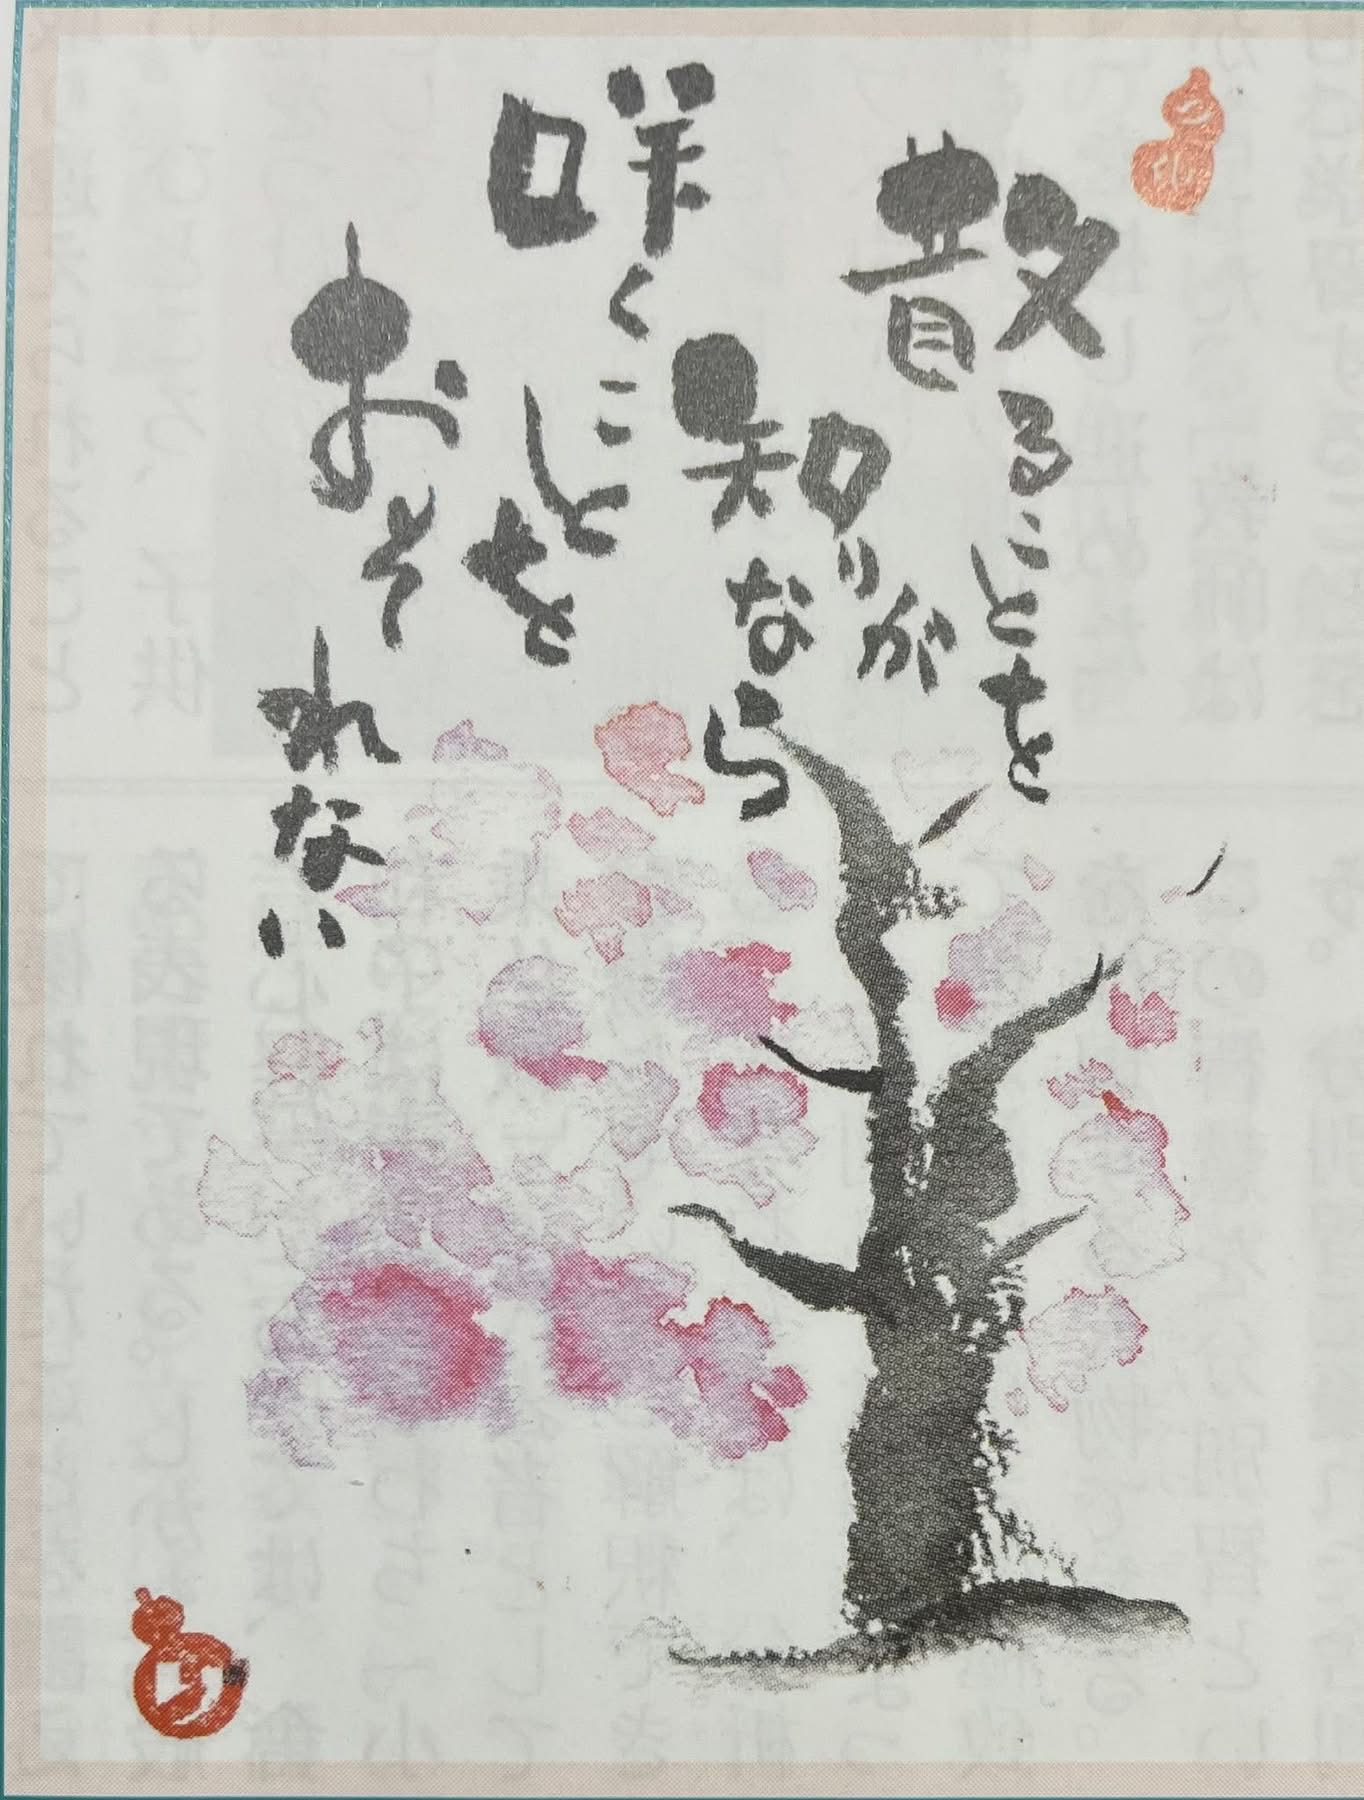 散ることを
知りながら
咲くことを
おそれない